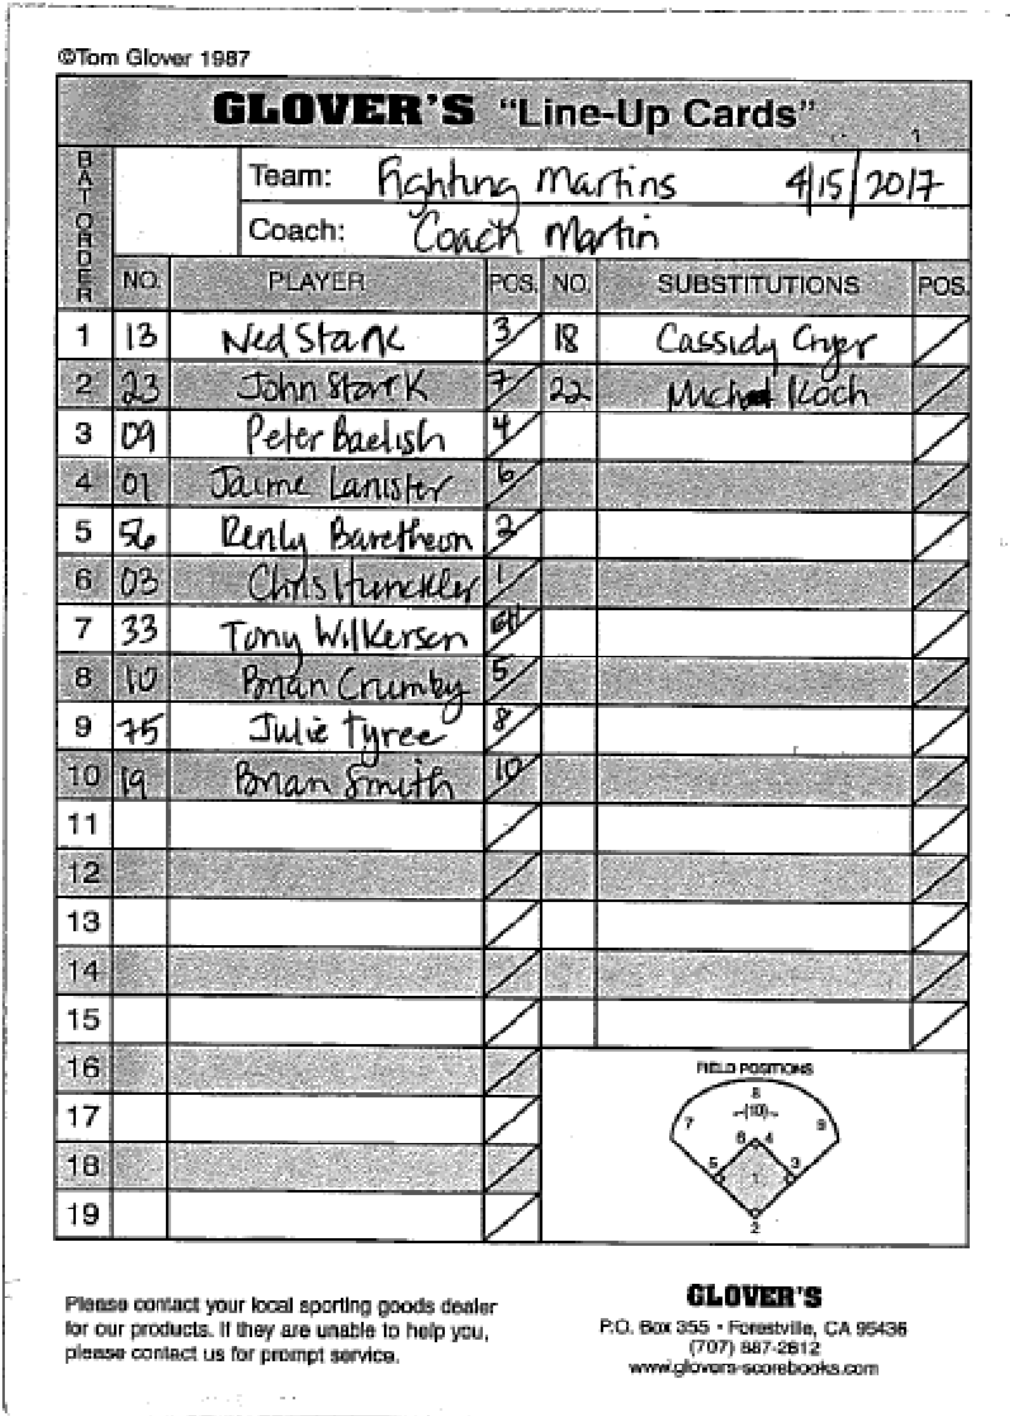 ©Tom Glover 1987
GLOVER'S "Line-Up Cards"
1
BAT ORDER
Team: Fighting Martins 4/15/2017
Coach: Coach Martin
NO. PLAYER POS. NO. SUBSTITUTIONS POS.
1 13 Ned Stark 3 18 Cassidy Cryer
2 23 John Stark 7 22 Koch
3 09 Peter Baelish 4
4 01 Jaime Lanister 6
5 56 Renly Baretheon 2
6 03 Chris Hunckler 1
7 33 Tony Wilkerson
8 10 Brian Crumby 5
9 75 Julie Tyree 8
10 19 Brian Smith 10
11
12
13
14
15
16
17
18
19
FIELD POSITIONS
8
(10)
7 9
6 4
5 3
1
2
Please contact your local sporting goods dealer
for our products. If they are unable to help you,
please contact us for prompt service.
GLOVER'S
P.O. Box 355 • Forestville, CA 95436
(707) 887-2812
www.glovers-scorebooks.com